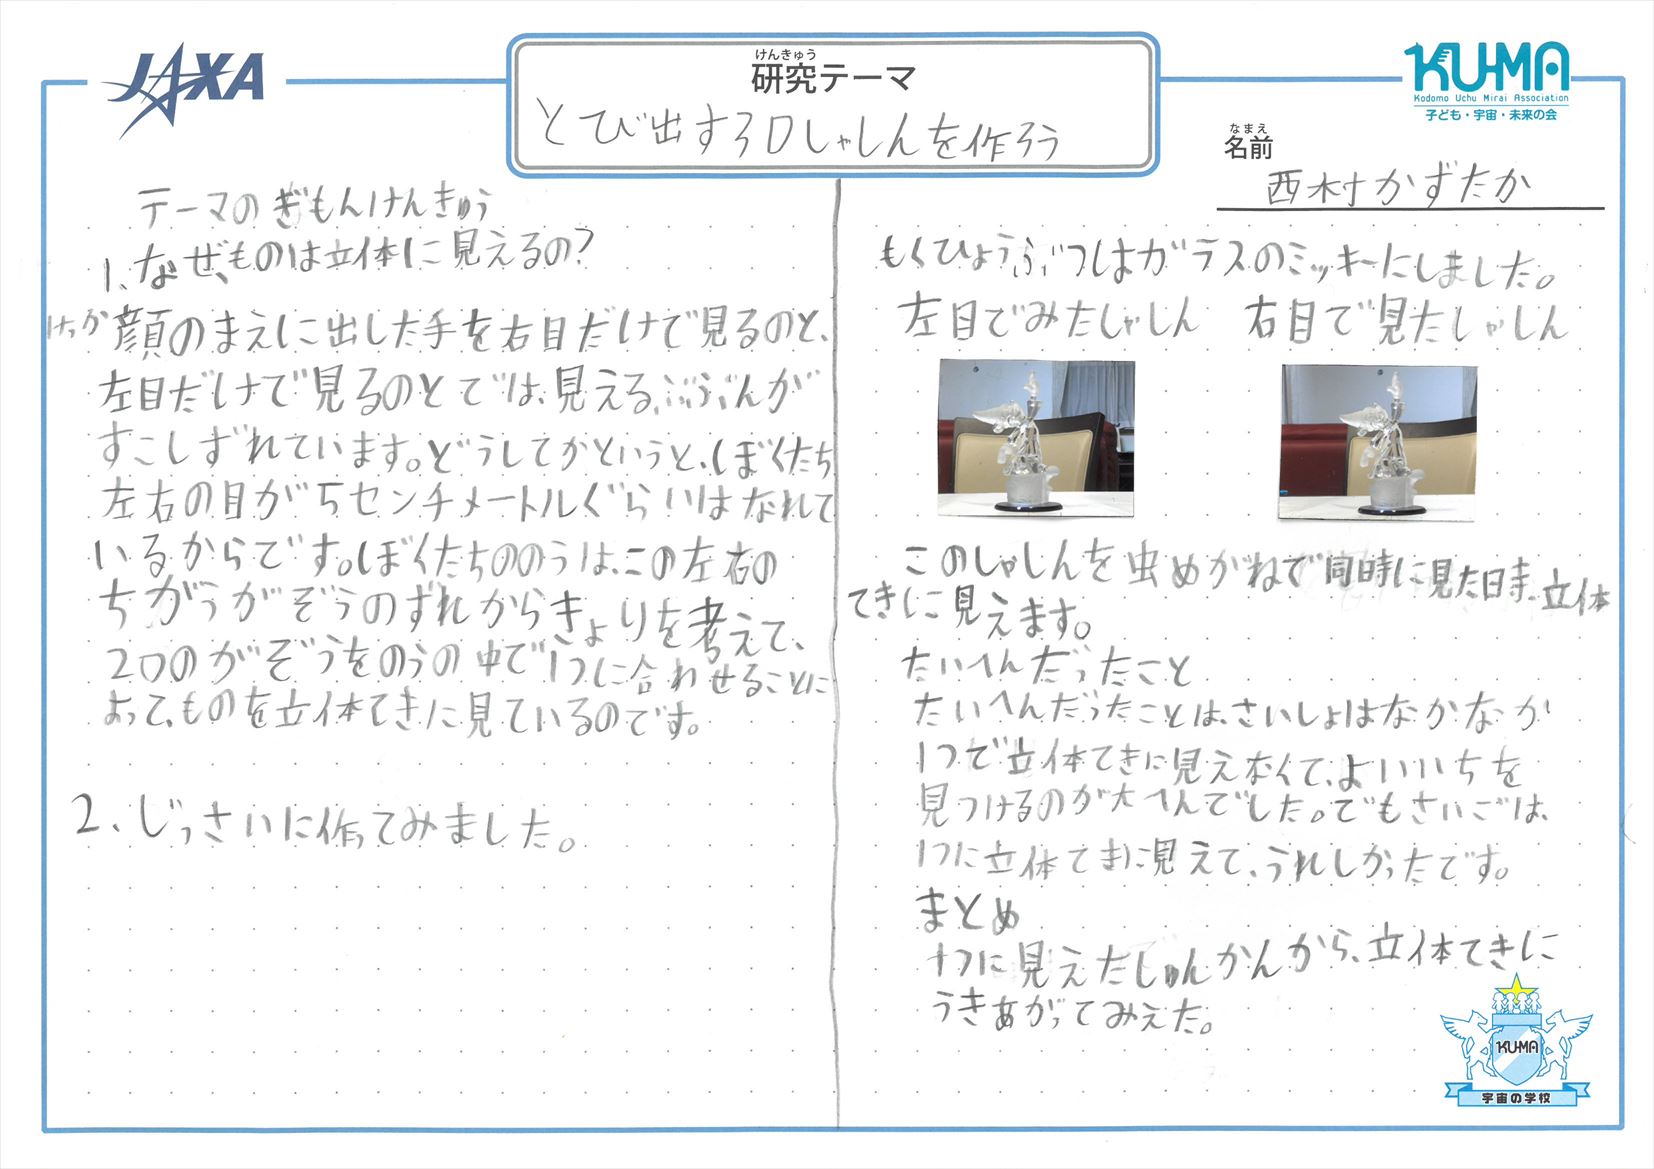 JAXA
けんきゅう
研究テーマ
とび出す3Dしゃしんを作ろう
KU-MA
Kodomo Uchu Mirai Association
子ども・宇宙・未来の会
なまえ
名前
西村かずたか
テーマのぎもんけんきゅう
1、なぜ、ものは立体に見えるの?
けっか 顔のまえに出した手を右目だけで見るのと、
左目だけで見るのとでは、見えるぶぶんが
すこしずれています。どうしてかというと、ぼくたち
左右の目が5センチメートルぐらいはなれて
いるからです。ぼくたちののうは、この左右の
ちがうがぞうのずれからきょりを考えて、
2つのがぞうをのうの中で1つに合わせることに
よって、ものを立体てきに見ているのです。
2、じっさいに作ってみました。
もくひょうぶつはガラスのミッキーにしました。
左目でみたしゃしん 右目で見たしゃしん
このしゃしんを虫めがねで同時に見た日時、立体
てきに見えます。
たいへんだったこと
たいへんだったことは、さいしょはなかなか
1つで立体てきに見えなくて、よいいちを
見つけるのが大へんでした。でもさいごは、
1つに立体てきに見えて、うれしかったです。
まとめ
1つに見えたじゅんかんから、立体てきに
うきあがってみえた。
KU-MA
宇宙の学校